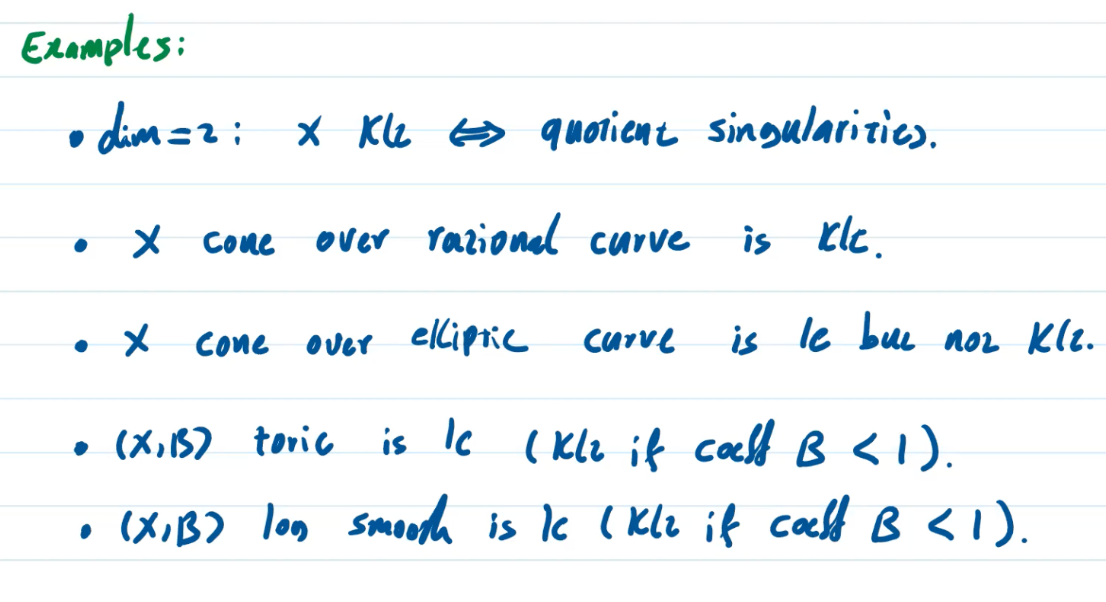 Examples:
• dim=2: X Klt ⟺ quotient singularities.
• X cone over rational curve is Klt.
• X cone over elliptic curve is lc but not Klt.
• (X,B) toric is lc (Klt if coeff B < 1).
• (X,B) log smooth is lc (Klt if coeff B < 1).